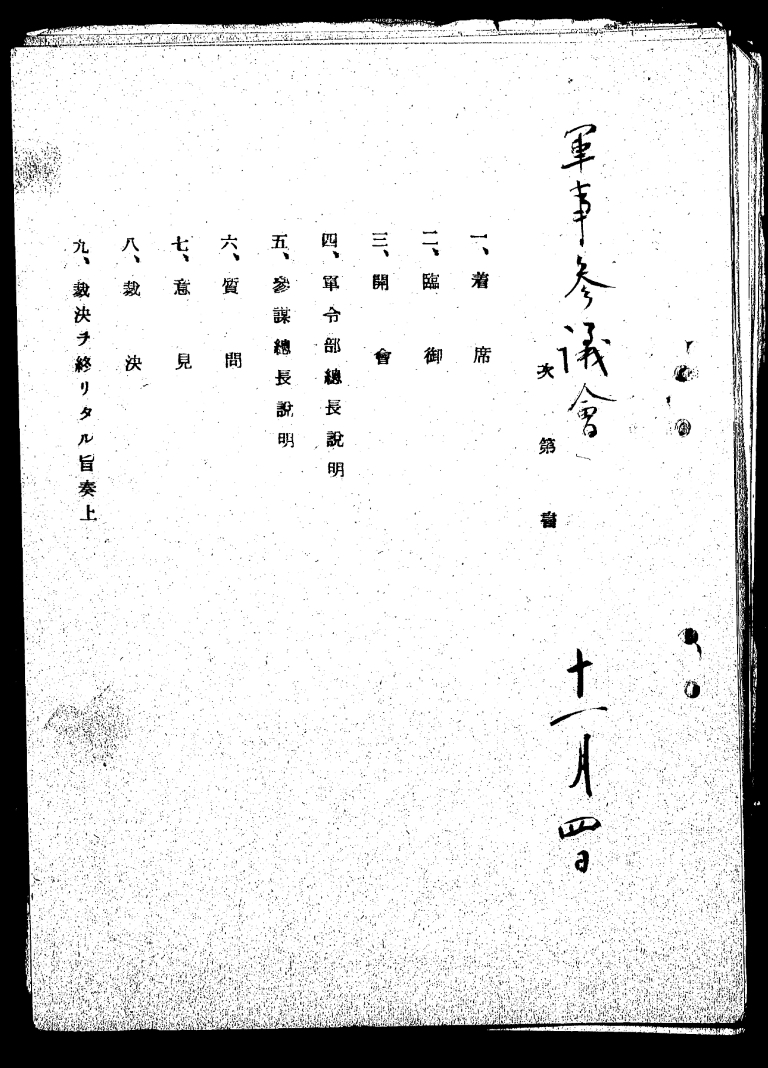 軍事参議會
十一月四日
次第書
一、着席
二、臨御
三、開會
四、軍令部總長說明
五、參謀總長說明
六、質問
七、意見
八、裁決
九、裁決ヲ終リタル旨奏上